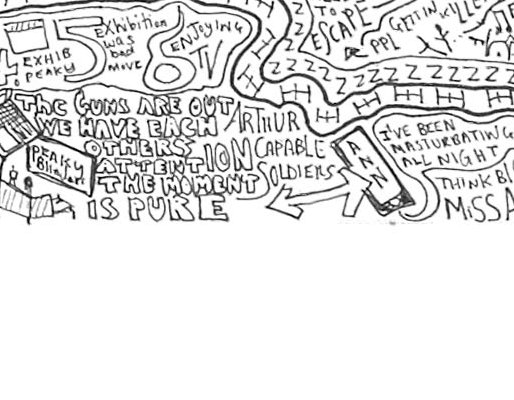 EXHIB
PEAKY
5
EXHibition
was
bad
MOVE
6
ENJOYING
TV
TO
ESCAPE
PPL
GETTIN
Z Z Z Z Z Z Z Z Z Z Z Z Z Z
THE GUNS ARE OUT
WE HAVE EACH
OTHERS
ATTENTION
THE MOMENT
IS PURE
PEAKY
Blinders
ARTHUR
CAPABLE
SOLDIERS
ANN
I'VE BEEN
MASTURBATING
ALL NIGHT
THINK
MISSA